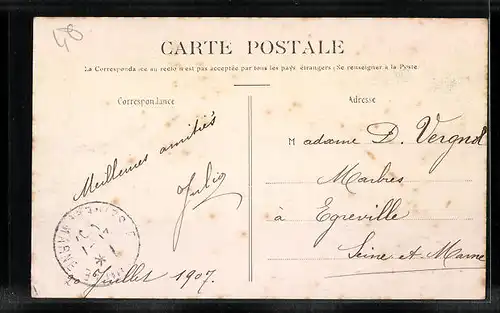 48
CARTE POSTALE
La Correspondance au recto n'est pas acceptée par tous les pays étrangers (Se renseigner à la Poste.
Correspondance
Adresse
Meilleures amitiés
Julia
Juillet 1907.
Madame D. Vergnol
Marbres
à Egreville
Seine et Marne